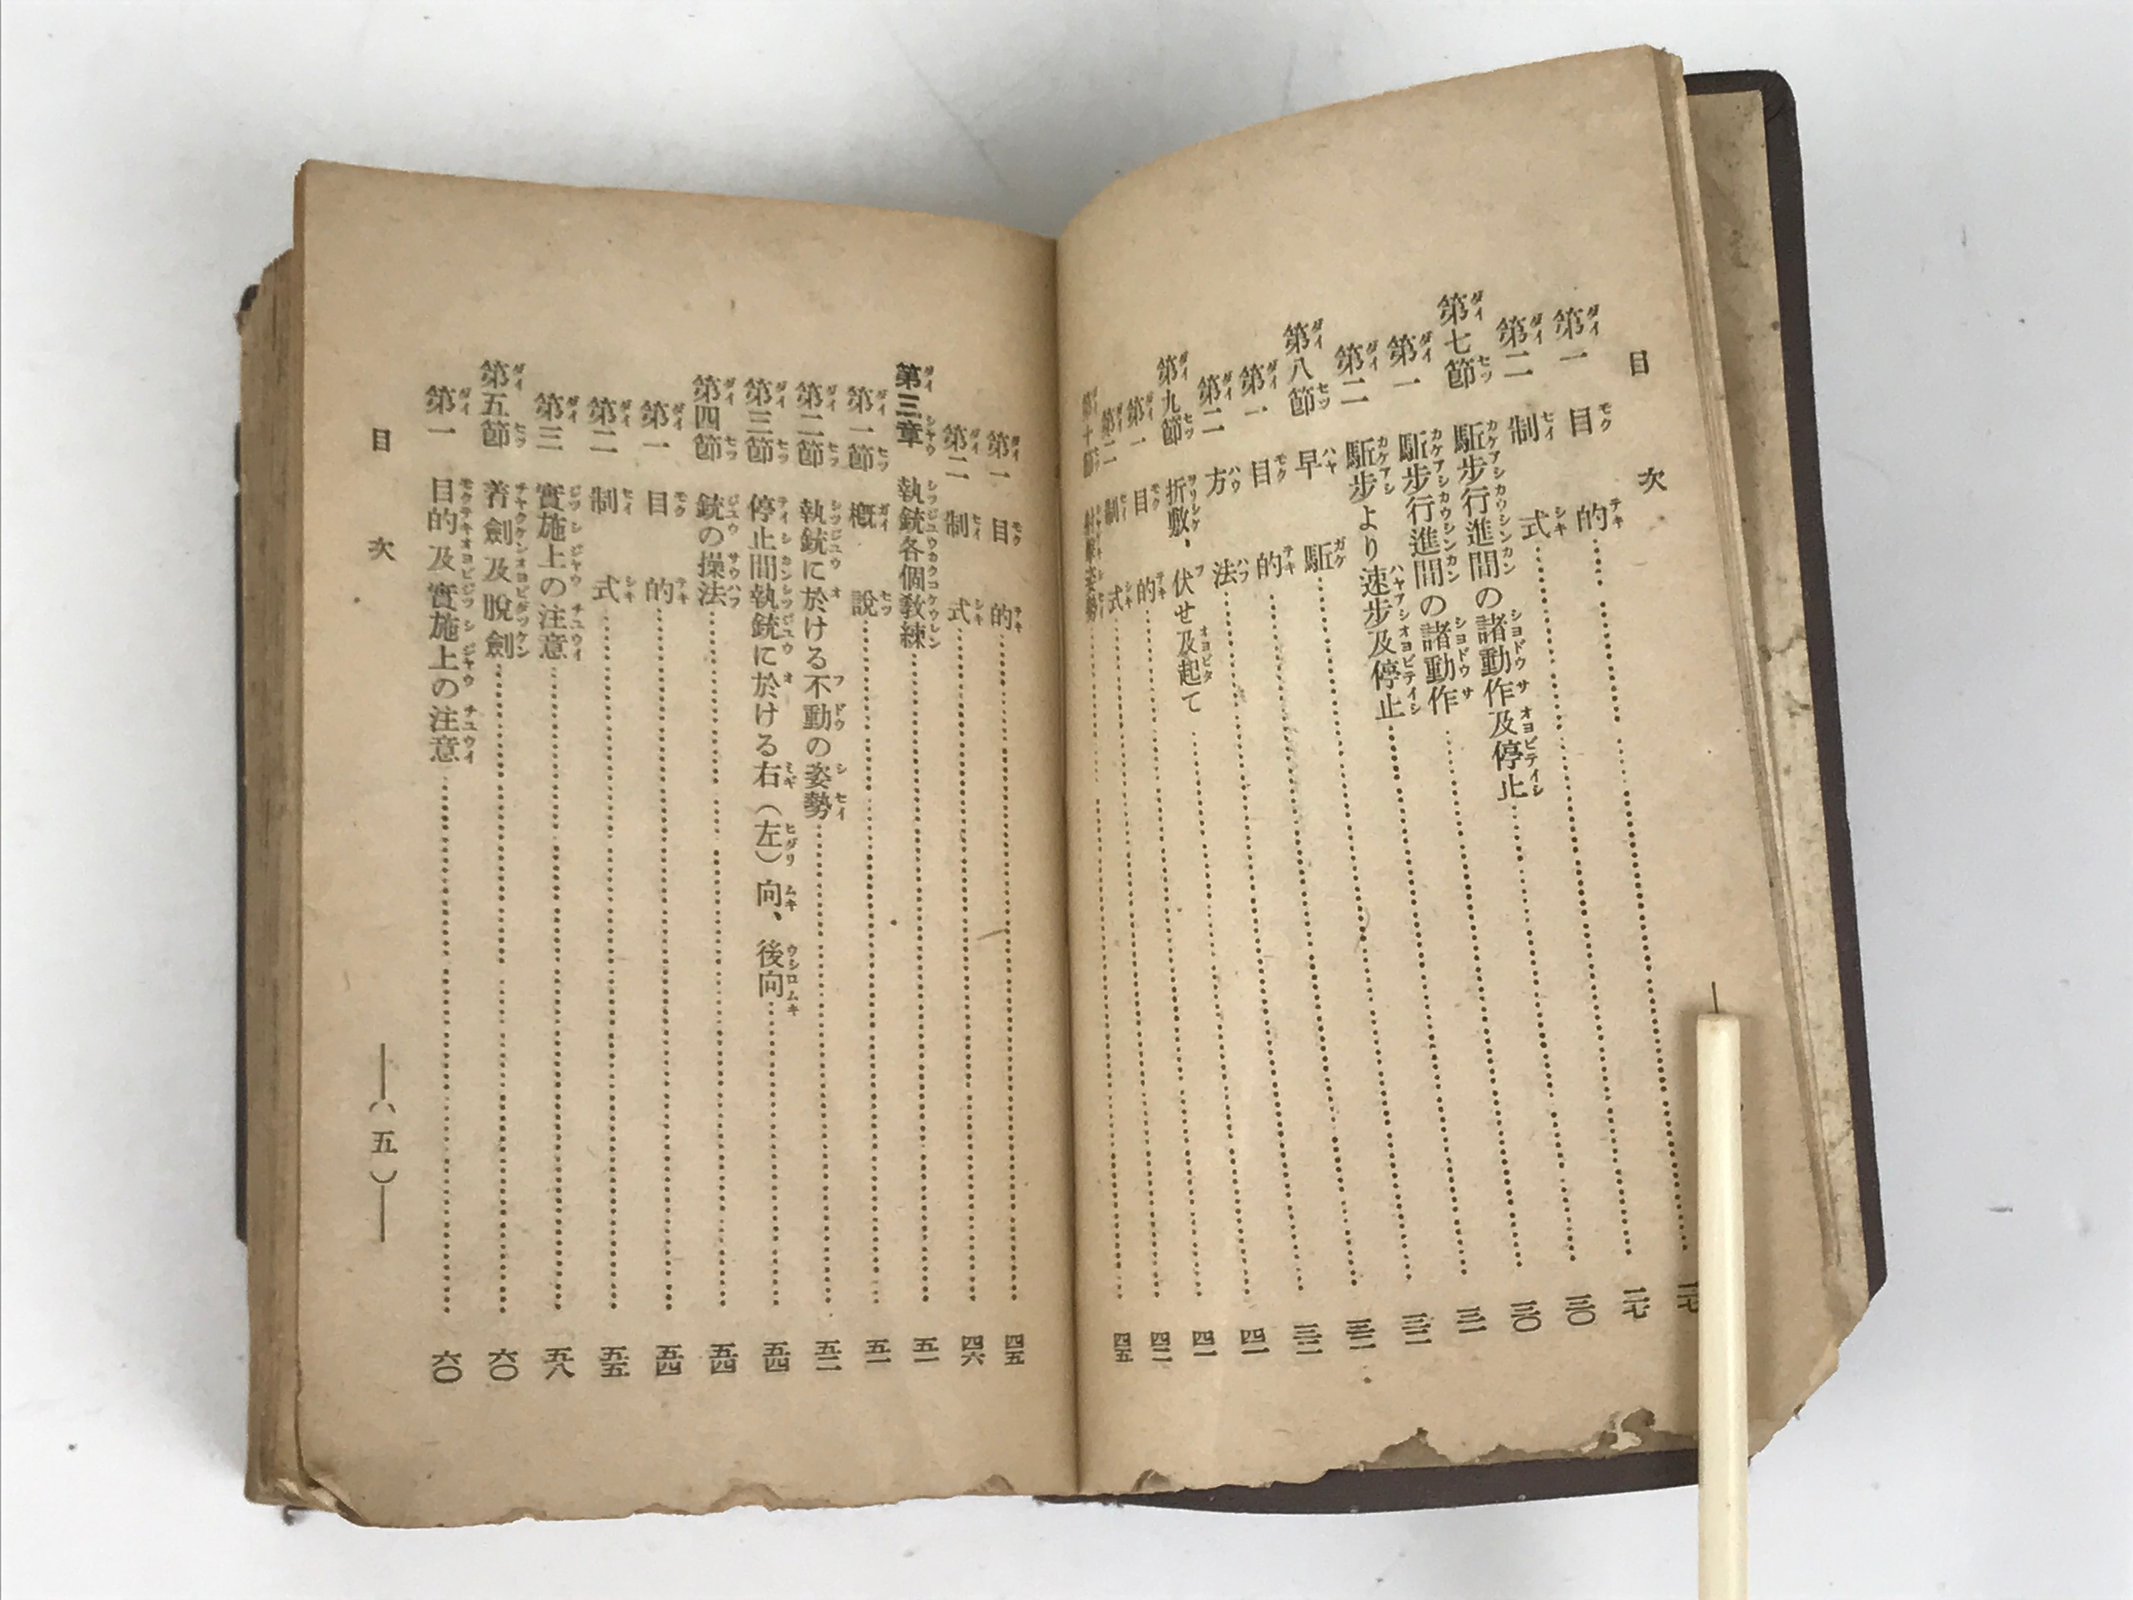 目次
第一 目的……二七
第二 制式……二七
第七節 駈步行進間の諸動作及停止……三〇
第一 駈步行進間の諸動作……三〇
第二 駈步より速步及停止……三一
第八節 早駈……三二
第一 目的……三二
第二 方法……三三
第九節 折敷、伏せ及起て……四一
第一 目的……四一
第二 制式……四二
第十節 射擊姿勢……四五
第一 目的……四五
第二 制式……四六
第三章 執銃各個敎練……五一
第一節 槪說……五一
第二節 執銃に於ける不動の姿勢……五二
第三節 停止間執銃に於ける右(左)向、後向……五四
第四節 銃の操法……五四
第一 目的……五四
第二 制式……五五
第三 實施上の注意……五八
第五節 着劍及脫劍……六〇
第一 目的及實施上の注意……六〇
目次
(五)